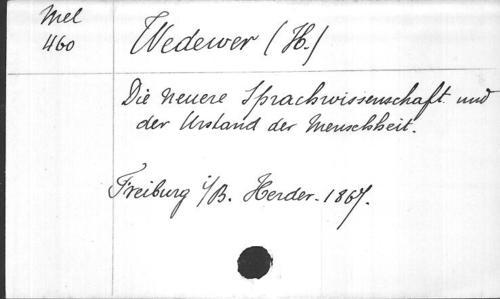 Mel
460
Wedewer (H.)
Die neuere Sprachwissenschaft und
der Urstand der Menschheit.
Freiburg i/B. Herder. 1867.